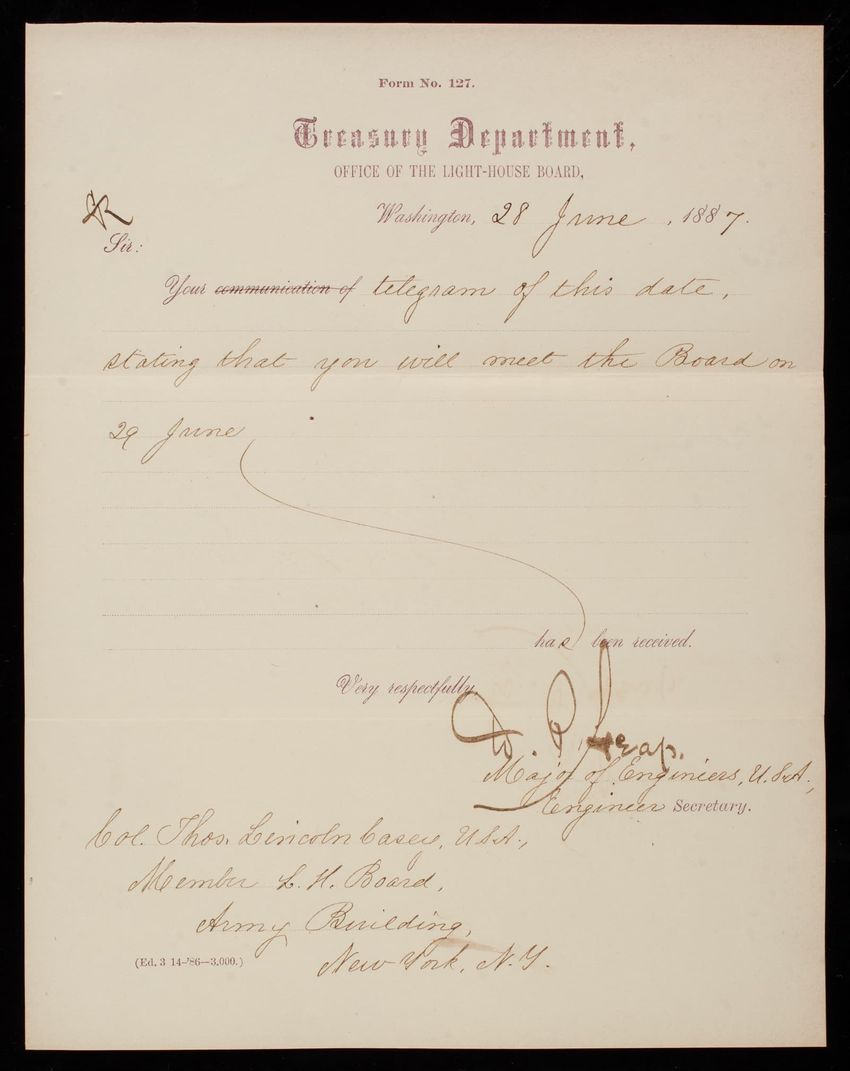 Form No. 127.
Treasury Department,
OFFICE OF THE LIGHT-HOUSE BOARD,
Washington, 28 June, 1887.
Sir:
Your communication of telegram of this date,
stating that you will meet the Board on
29 June
has been received.
Very respectfully,
D. P. Heap.
Major of Engineers, U.S.A.,
Engineer Secretary.
Col. Thos. Lincoln Casey, U.S.A.,
Member L. H. Board,
Army Building,
New York, N.Y.
(Ed. 3 14-'86—3,000.)